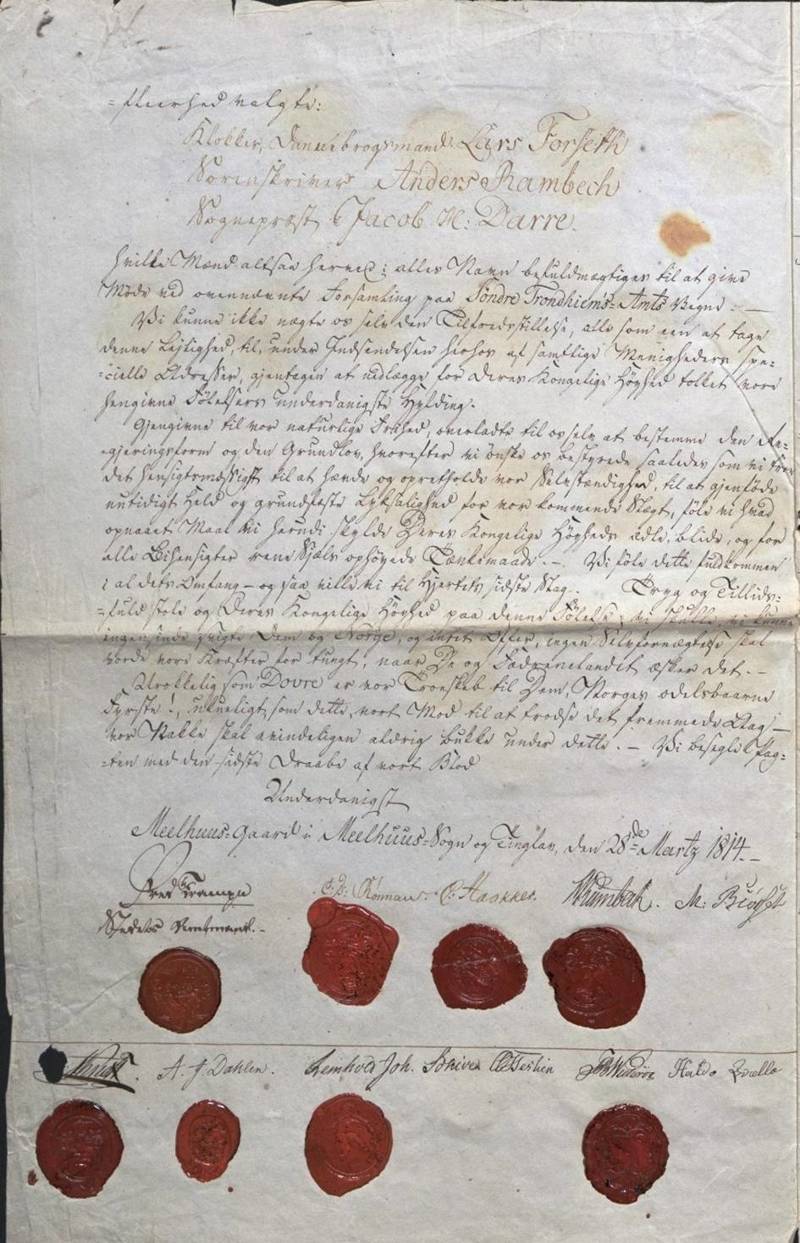 =fleerhed valgte:
Klokker, Dannebrogsmand Lars Forseth
Sorenskriver Anders Rambech
Sognepræst Jacob H: Darre.
hvilke Mænd altsaa herved i alles Navn befuldmægtiges til at give
Møde ved ovennævnte Forsamling paa Söndre Trondhiems-Amts Vegne. —
Vi kunne ikke nægte os selv den Tilfredsstillelse, alle som een at tage
denne Leilighed, til, under Indsendelsen herhos af samtlige Menigheders spe-
=cielle Adresser, gientagen at nedlægge for Deres Kongelige Höyhed tolket vore
hengivne Følelsers underdanigste Hylding.
Gjengivne til vor naturlige Frihed, overladte til os selv at bestemme den Re-
gjeringsform og den Grundlov, hvorefter vi ønske os bestyrede saaledes som vi troe
det hensigtsmæssigst til at hævde og opretholde vor Selvstændighed, til at gjenføde
nutidigt Held og grundfæste Lyksalighed for vor kommende Slægt, føle vi hvad
opnaaet Maal vi herudi skylde Deres Kongelige Höyheds ædle, blide, og for
alle Bihensigter rene Siæls ophøyede Tænkemaade. — Vi føle dette fuldkommen
i al dets Omfang — og saa ville vi til Hjertets sidste Slag. Tryg og Tillids-
=fuld stole og Deres Kongelige Höyhed paa denne Følelse; vi skulle, vi kunne
ingensinde svigte Dem og Norge, og intet Offer, ingen Selvfornægtelse skal
vorde vore Kræfter for tungt, naar De og Fædrenelandet æsker det. —
Urokkelig som Dovre er vor Troeskab til Dem, Norges odelsbaarne
Fyrste!, ukueligt, som dette, vort Mod til at trodse det fremmede Aag —
vor Nakke skal avindeligen aldrig bukke under dette. — Vi besegle Pag-
=ten med den sidste Draabe af vort Blod
Underdanigst
Meelhuus-Gaard i Meelhuus-Sogn og Tinglav, den 28de Martz 1814. —
Fred Trampe
Stedets Amtmand. —
Rønnau. Haakker. Rambech. M: Biørset
A. J. Dahlen. Reinhold Joh. Haldo Qvællo